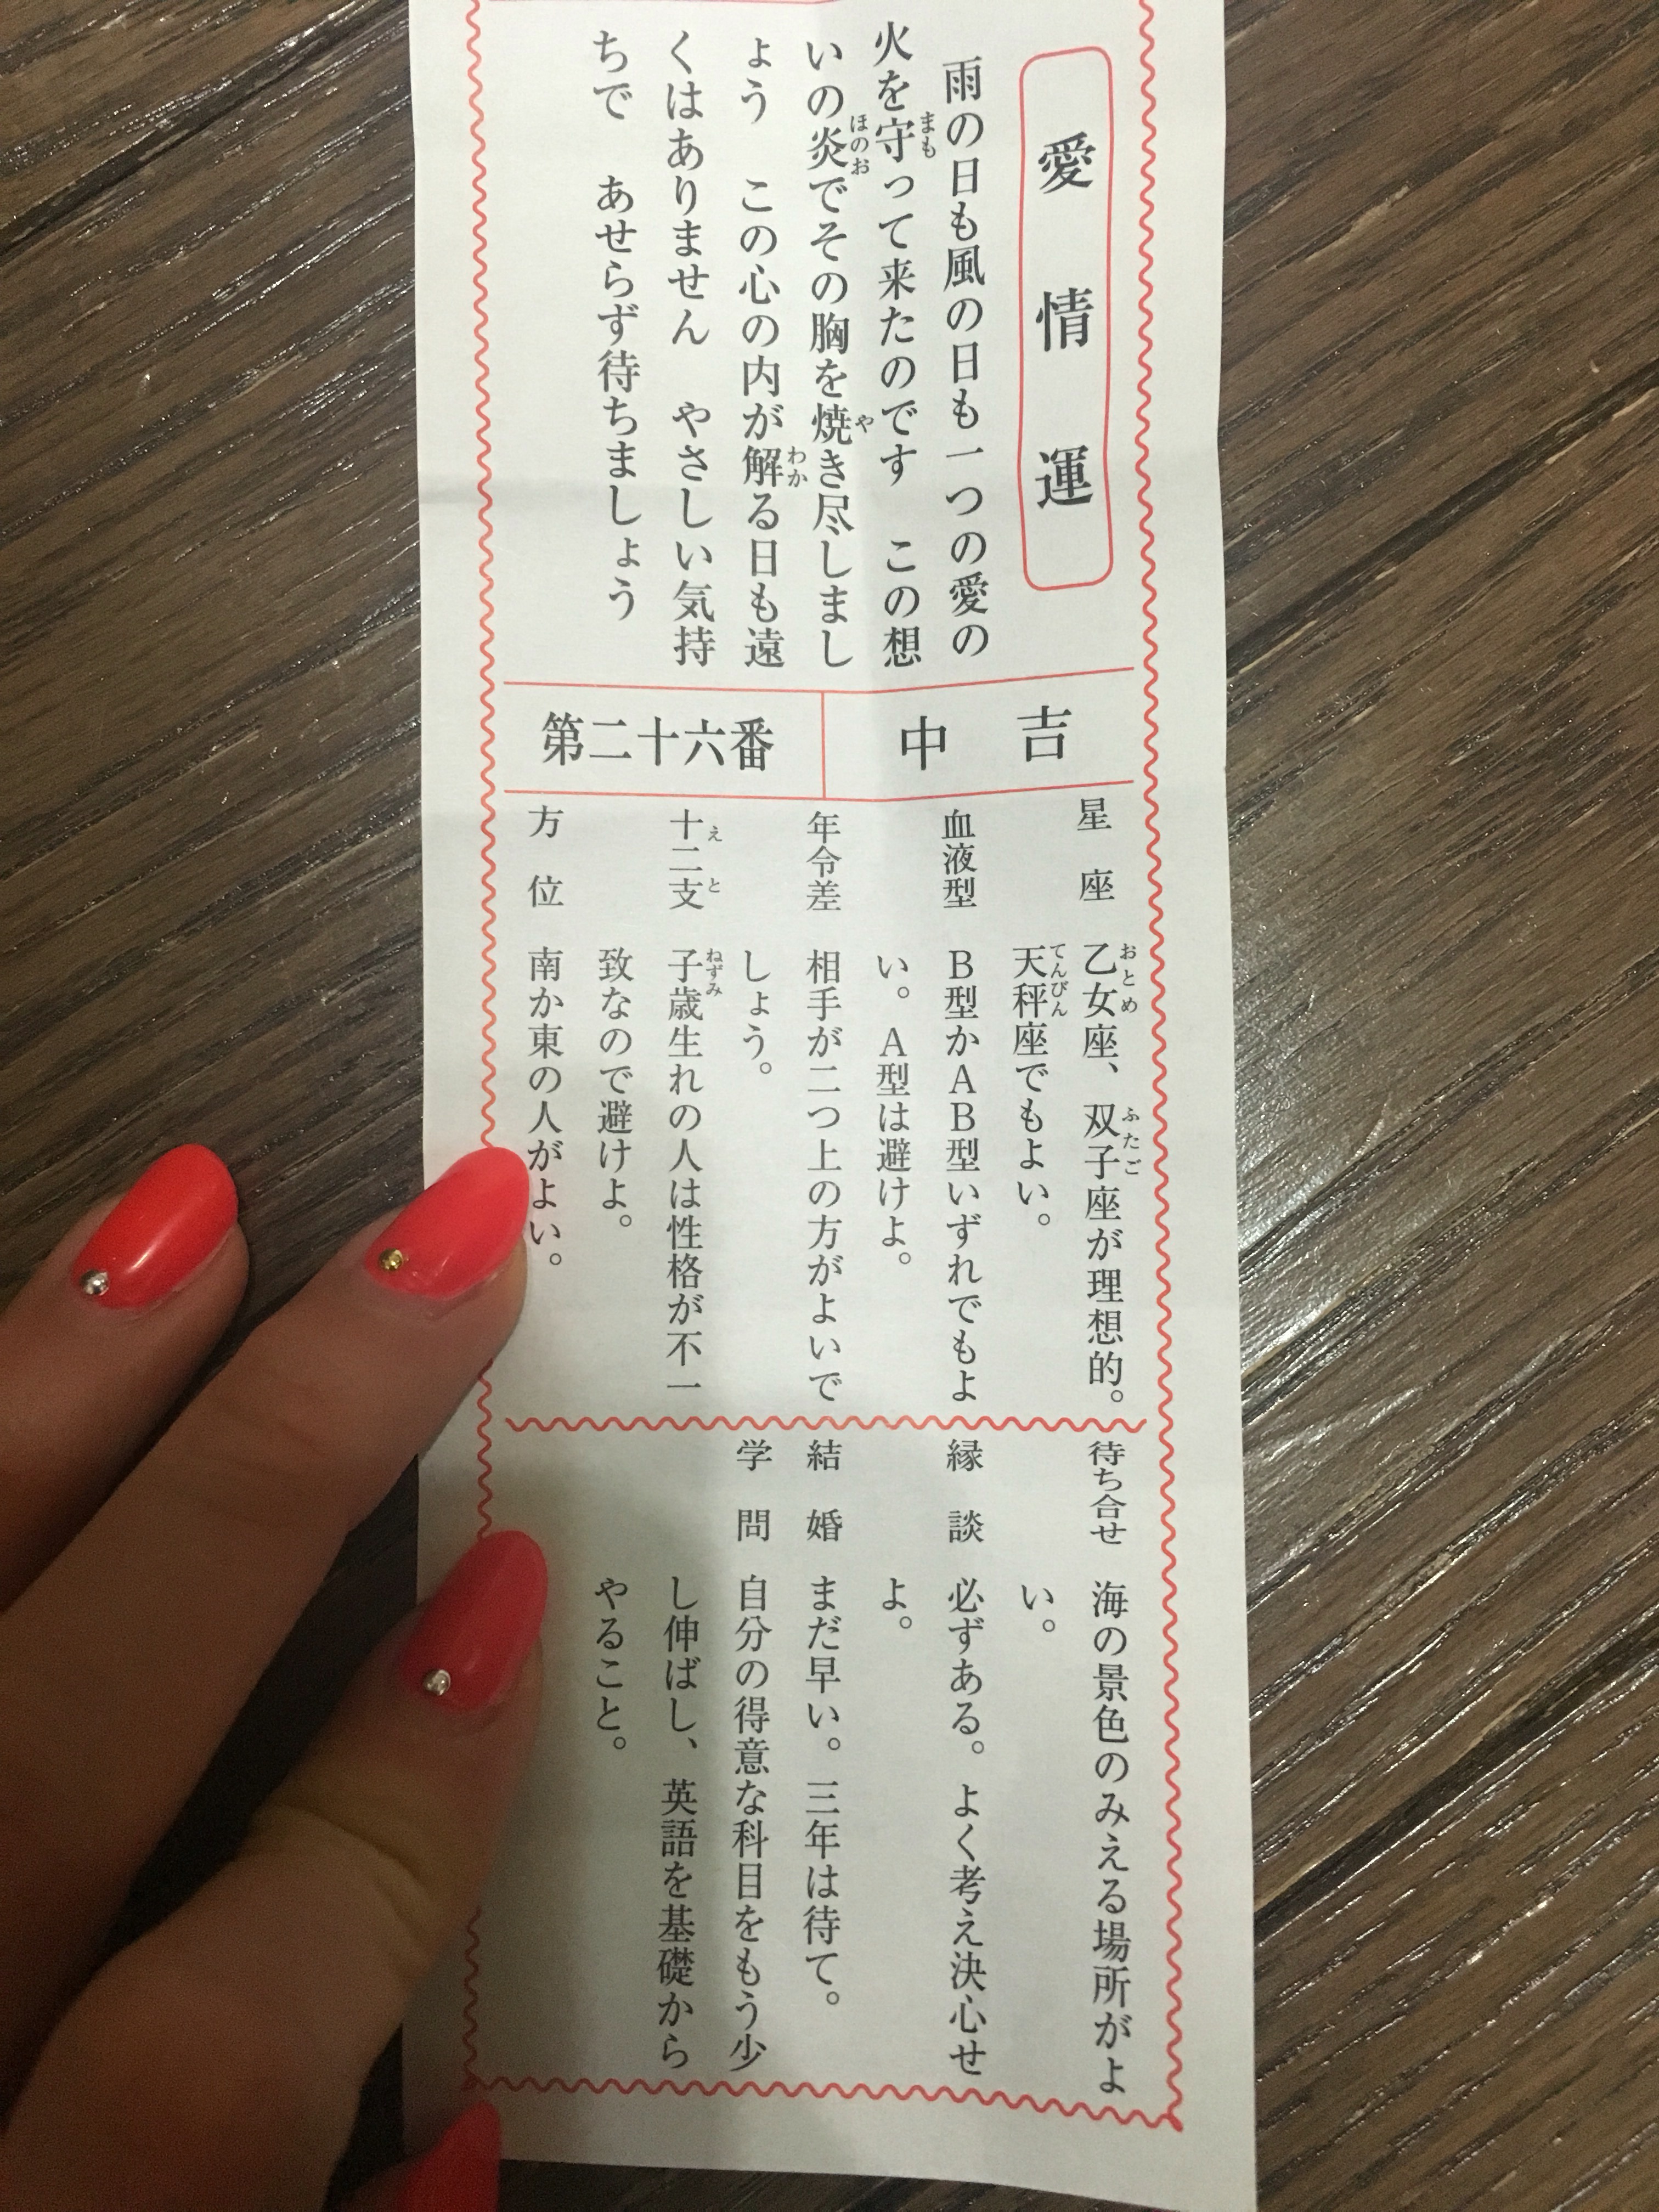 愛情運
雨の日も風の日も一つの愛の
火を守って来たのです　この想
いの炎でその胸を焼き尽しまし
ょう　この心の内が解る日も遠
くはありません　やさしい気持
ちで　あせらず待ちましょう
まも
ほのお
や
わか
第二十六番
中吉
星座　乙女座、双子座が理想的。
天秤座でもよい。
おとめ
ふたご
てんびん
血液型　B型かAB型いずれでもよ
い。A型は避けよ。
年令差　相手が二つ上の方がよいで
しょう。
十二支　子歳生れの人は性格が不一
致なので避けよ。
えと
ねずみ
方位　南か東の人がよい。
待ち合せ　海の景色のみえる場所がよ
い。
縁談　必ずある。よく考え決心せ
よ。
結婚　まだ早い。三年は待て。
学問　自分の得意な科目をもう少
し伸ばし、英語を基礎から
やること。